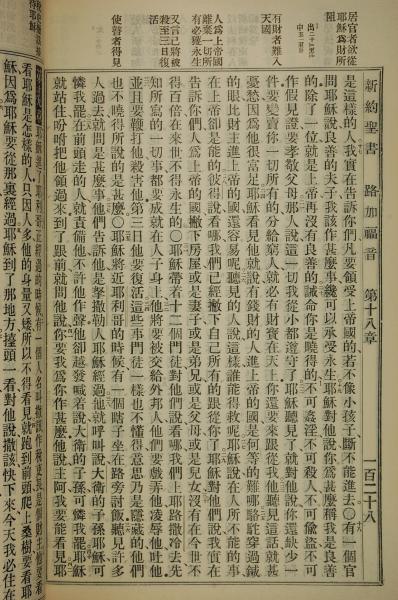 新約聖書 路加福音 第十八章 一百二十八
是這樣的人我實在告訴你們凡要領受上帝國的若不像小孩子斷不能進去○有一個官
問耶穌說良善的夫子我該作甚麼事纔可以承受永生耶穌對他說你爲甚麼稱我是良善
的除了一位就是上帝再沒有良善的誡命你是曉得的不可姦淫不可殺人不可偷盜不可
作假見證要孝敬父母那人說這一切我從小都遵守了耶穌聽見了就對他說你還缺少一
件要變賣你一切所有的分給窮人就必有財寶在天上你還要來跟從我他聽見這話就甚
憂愁因爲他很富足耶穌看見他就說有錢財的人進上帝的國是何等的難哪駱駝穿過鍼
的眼比財主進上帝的國還容易呢聽見的人說這樣誰能得救呢耶穌說在人所不能的事
在上帝卻是能的彼得說看哪我們已經撇下自己所有的跟從你了耶穌對他們說我實在
告訴你們人爲上帝的國撇下房屋或是妻子或是弟兄或是父母或是兒女沒有在今世不
得百倍在來世不得永生的○耶穌帶着十二個門徒對他們說看哪我們上耶路撒冷去先
知所寫的一切事都要成就在人子身上他將要被交給外邦人他們要戲弄他凌辱他吐他
並且要鞭打他殺害他第三日他要復活這些事門徒一樣也不懂得意思乃是隱藏的他們
也不曉得所說的是甚麼○耶穌將近耶利哥的時候有一個瞎子坐在路旁討飯聽見許多
人過去就問是甚麼事他們告訴他是拿撒勒人耶穌經過他就呼叫說大衛的子孫耶穌可
憐我罷在前頭走的人就責備他不許他作聲他卻越發喊着說大衛的子孫可憐我罷耶穌
就站住吩咐把他領過來到了跟前就問他說你要我爲你作甚麼他說主阿我要能看見耶
居官者欲從
耶穌爲財所
阻
有財者難入
天國
人爲上帝國
離棄一切所
有必獲永生
又言已將被
殺至三日復
活
使瞽者得見
進了耶利哥正經過的時候有一個人名叫撒該作稅吏長是個財主他要看
看耶穌是怎樣的人只因人多他的身量又矮所以不得看見就跑到前頭爬上桑樹要看耶
穌因爲耶穌要從那裏經過耶穌到了那地方擡頭一看對他說撒該快下來今天我必住在